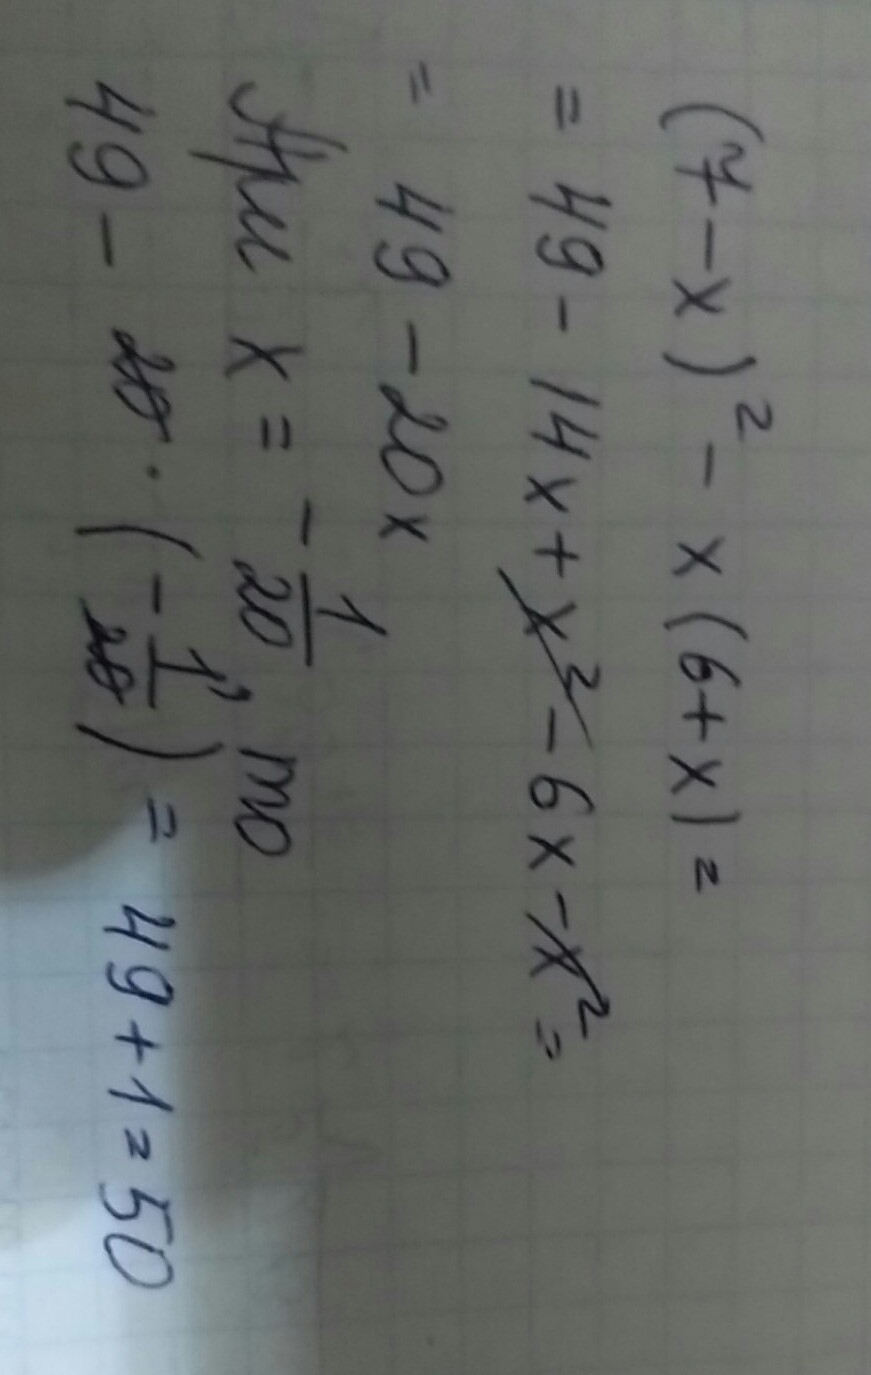 (7-x)² - x(6+x) =
= 49 - 14x + x² - 6x - x² =
= 49 - 20x
При x = -1/20, то
49 - 20 · (-1/20) = 49 + 1 = 50